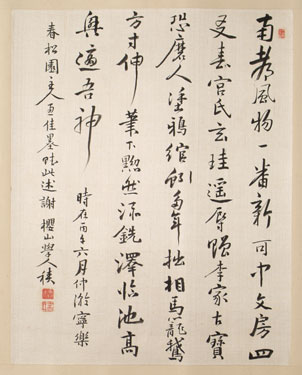 南都風物一番新可中文房四
友春宮氏玄珪遥辱贈李家古寶
恐磨人塗鴉綰蚓多年拙相馬籠鵞
方寸伸筆下黯然添銑澤臨池高
興適吾神
春松園主人恵佳墨賦此述謝
時在丙午六月仲澣寧樂
櫻山學人